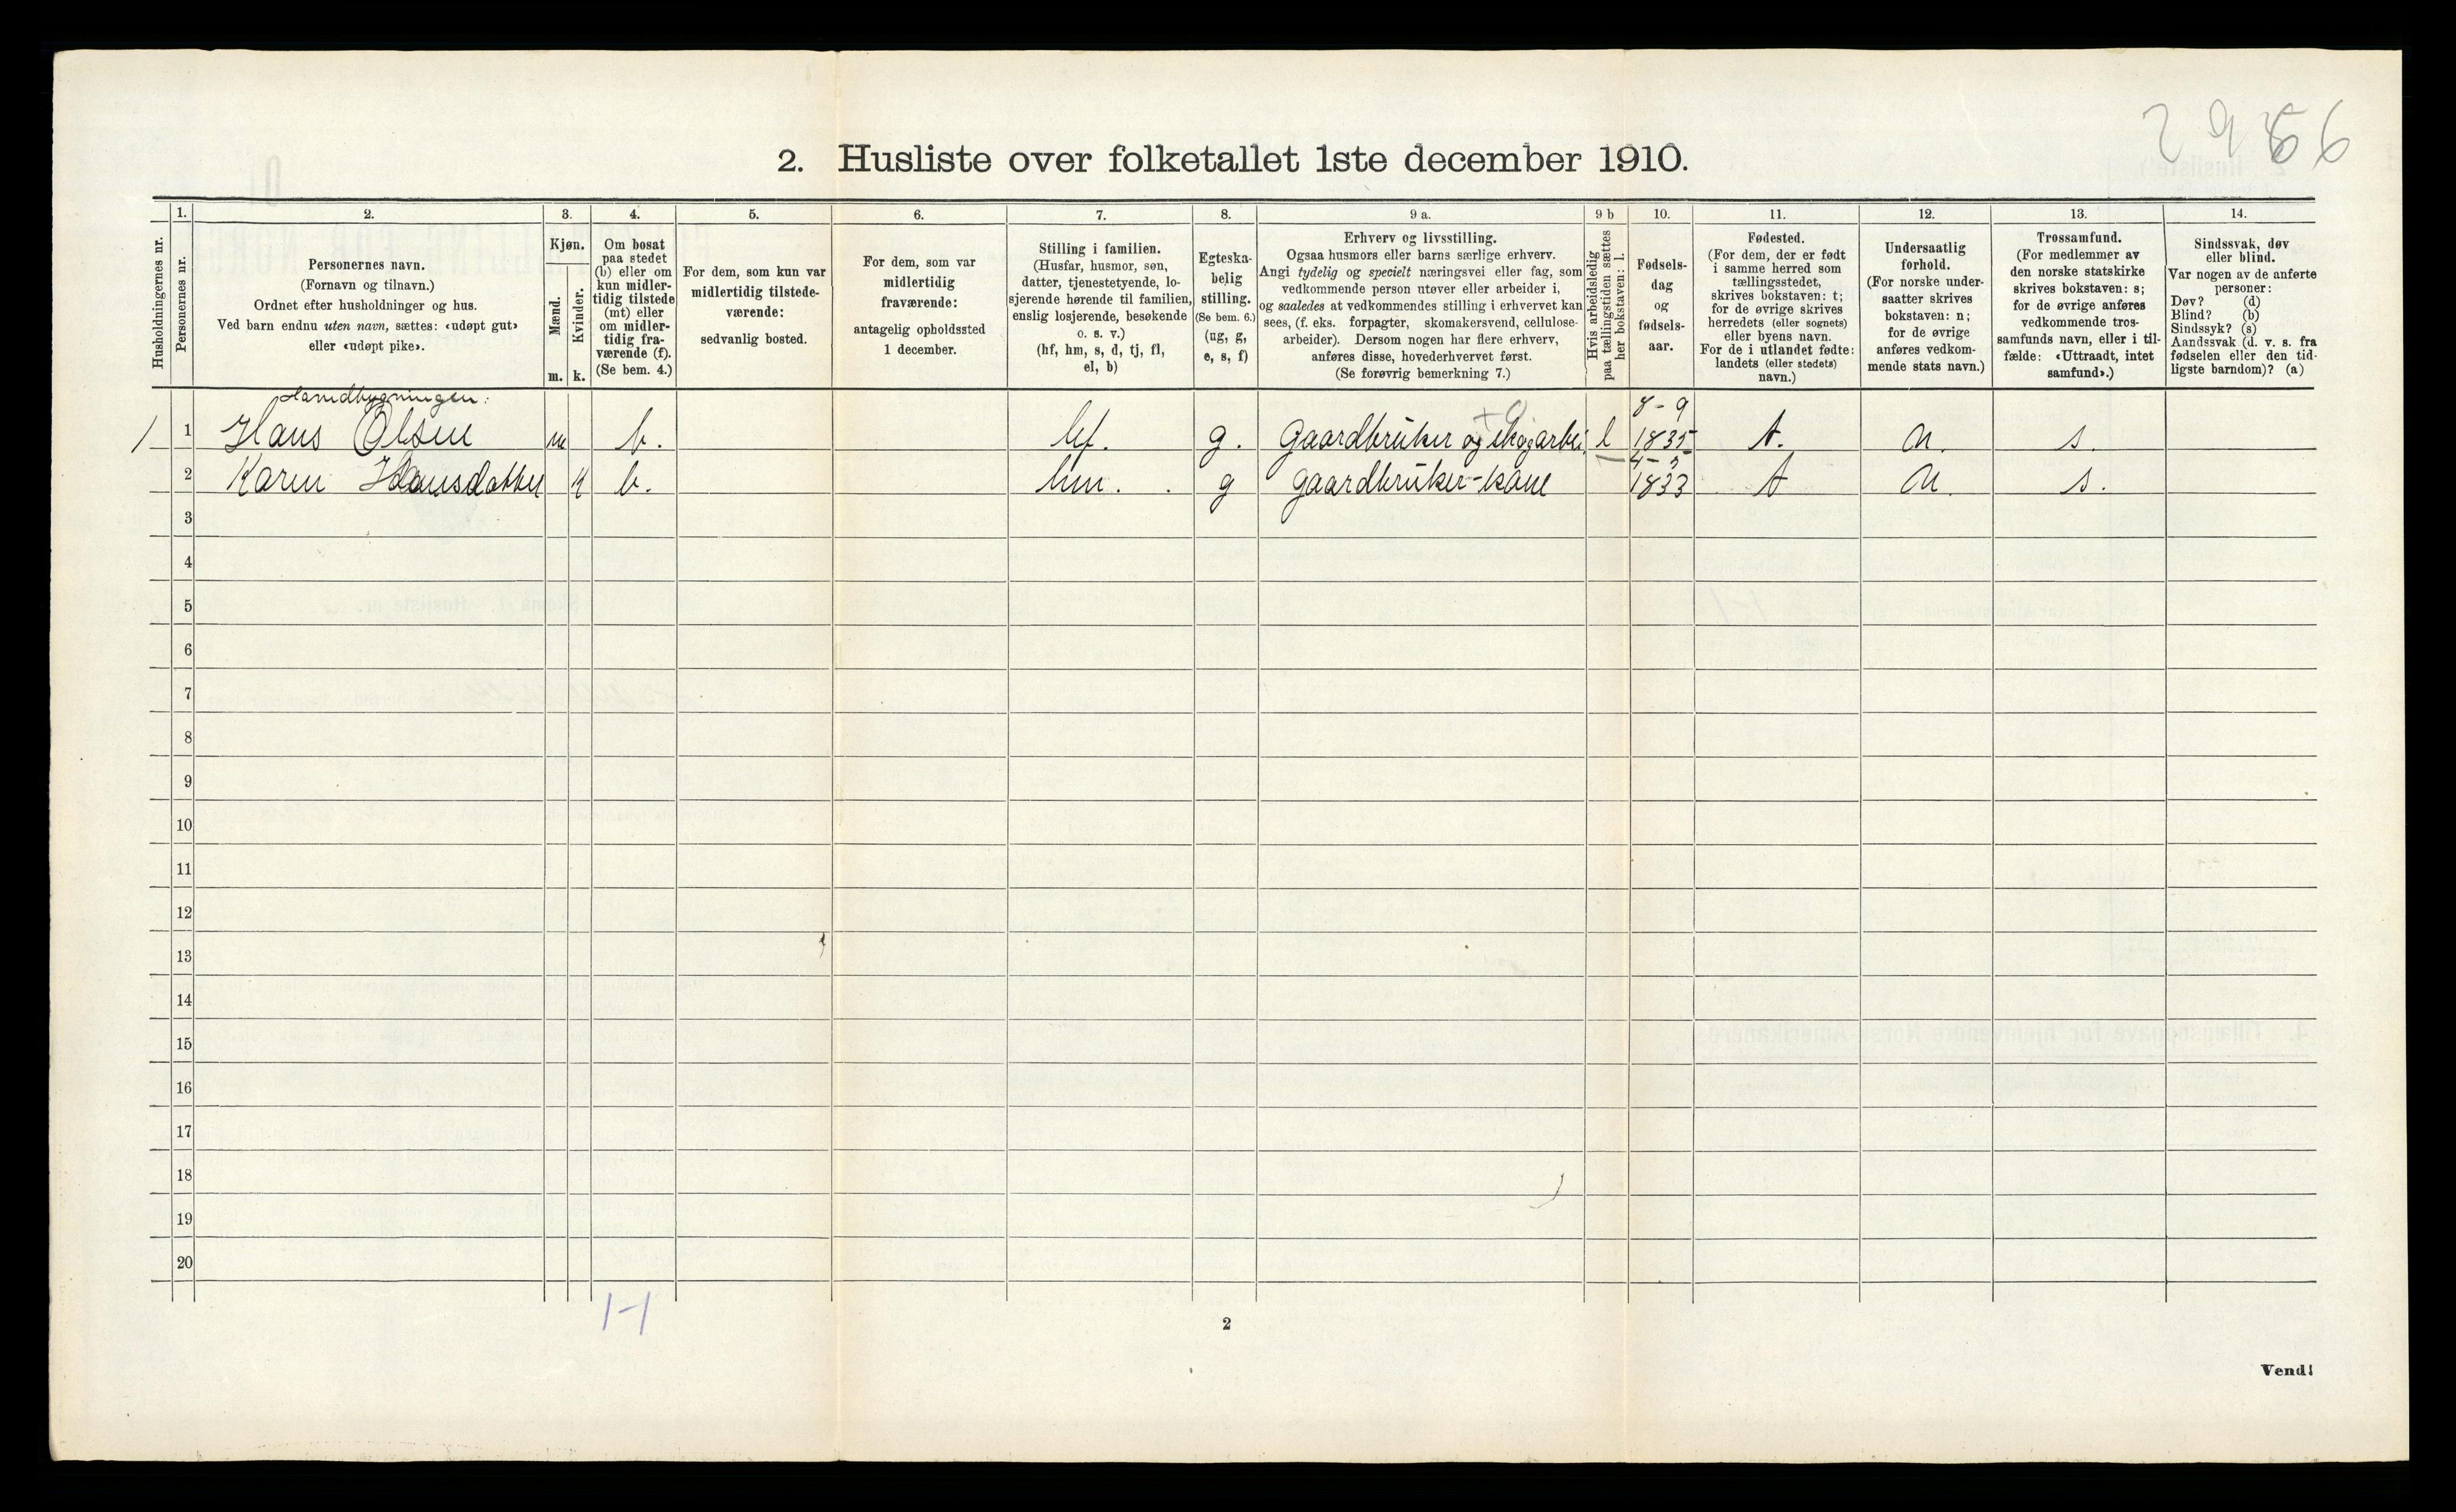 2956
2. Husliste over folketallet 1ste december 1910.
Husholdningernes nr.
1.
Personernes nr.
2.
Personernes navn.
(Fornavn og tilnavn.)
Ordnet efter husholdninger og hus.
Ved barn endnu uten navn, sættes: «udøpt gut»
eller «udøpt pike».
3.
Kjøn.
Mænd.
Kvinder.
m. k.
4.
Om bosat
paa stedet
(b) eller om
kun midler-
tidig tilstede
(mt) eller
om midler-
tidig fra-
værende (f).
(Se bem. 4.)
5.
For dem, som kun var
midlertidig tilstede-
værende:
sedvanlig bosted.
6.
For dem, som var
midlertidig
fraværende:
antagelig opholdssted
1 december.
7.
Stilling i familien.
(Husfar, husmor, søn,
datter, tjenestetyende, lo-
sjerende hørende til familien,
enslig losjerende, besøkende
o. s. v.)
(hf, hm, s, d, tj, fl,
el, b)
8.
Egteska-
belig
stilling.
(Se bem. 6.)
(ug, g,
e, s, f)
9 a.
Erhverv og livsstilling.
Ogsaa husmors eller barns særlige erhverv.
Angi tydelig og specielt næringsvei eller fag, som
vedkommende person utøver eller arbeider i,
og saaledes at vedkommendes stilling i erhvervet kan
sees, (f. eks. forpagter, skomakersvend, cellulose-
arbeider). Dersom nogen har flere erhverv,
anføres disse, hovederhvervet først.
(Se forøvrig bemerkning 7.)
9 b
Hvis arbeidsledig
paa tællingstiden sættes
her bokstaven: l.
10.
Fødsels-
dag
og
fødsels-
aar.
11.
Fødested.
(For dem, der er født
i samme herred som
tællingsstedet,
skrives bokstaven: t;
for de øvrige skrives
herredets (eller sognets)
eller byens navn.
For de i utlandet fødte:
landets (eller stedets)
navn.)
12.
Undersaatlig
forhold.
(For norske under-
saatter skrives
bokstaven: n;
for de øvrige
anføres vedkom-
mende stats navn.)
13.
Trossamfund.
(For medlemmer av
den norske statskirke
skrives bokstaven: s;
for de øvrige anføres
vedkommende tros-
samfunds navn, eller i til-
fælde: «Uttraadt, intet
samfund».)
14.
Sindssvak, døv
eller blind.
Var nogen av de anførte
personer:
Døv? (d)
Blind? (b)
Sindssyk? (s)
Aandssvak (d. v. s. fra
fødselen eller den tid-
ligste barndom)? (a)
1 1 Hans Olsen m b. hf. g. Gaardbruker og skogarbei. l 8-9 1835 t. n. s.
2 Karen Hansdatter k b. hm. g gaardbruker-kone 1833 t n. s.
3
4
5
6
7
8
9
10
11
12
13
14
15
16
17
18
19
20
1-1
2
Vend!